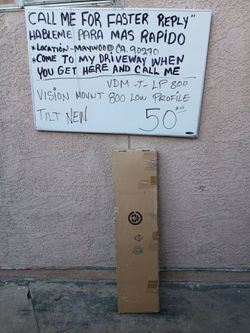 CALL ME FOR FASTER REPLY"
HABLEME PARA MAS RAPIDO
*LOCATION-MAYWOOD CA. 90270
*COME TO MY DRIVEWAY WHEN
YOU GET HERE AND CALL ME
VDM-T-LP 800
VISION MOUNT 800 LOW PROFILE
TILT NEW 50⁰⁰